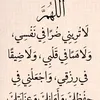 اللَّهُمَّ
لَا تُرِيَنِي ضُرًّا فِي نَفْسِي،
وَلَا هَمًّا فِي قَلْبِي، وَلَا ضِيقًا
فِي رِزْقِي، وَاجْعَلْنِي فِي